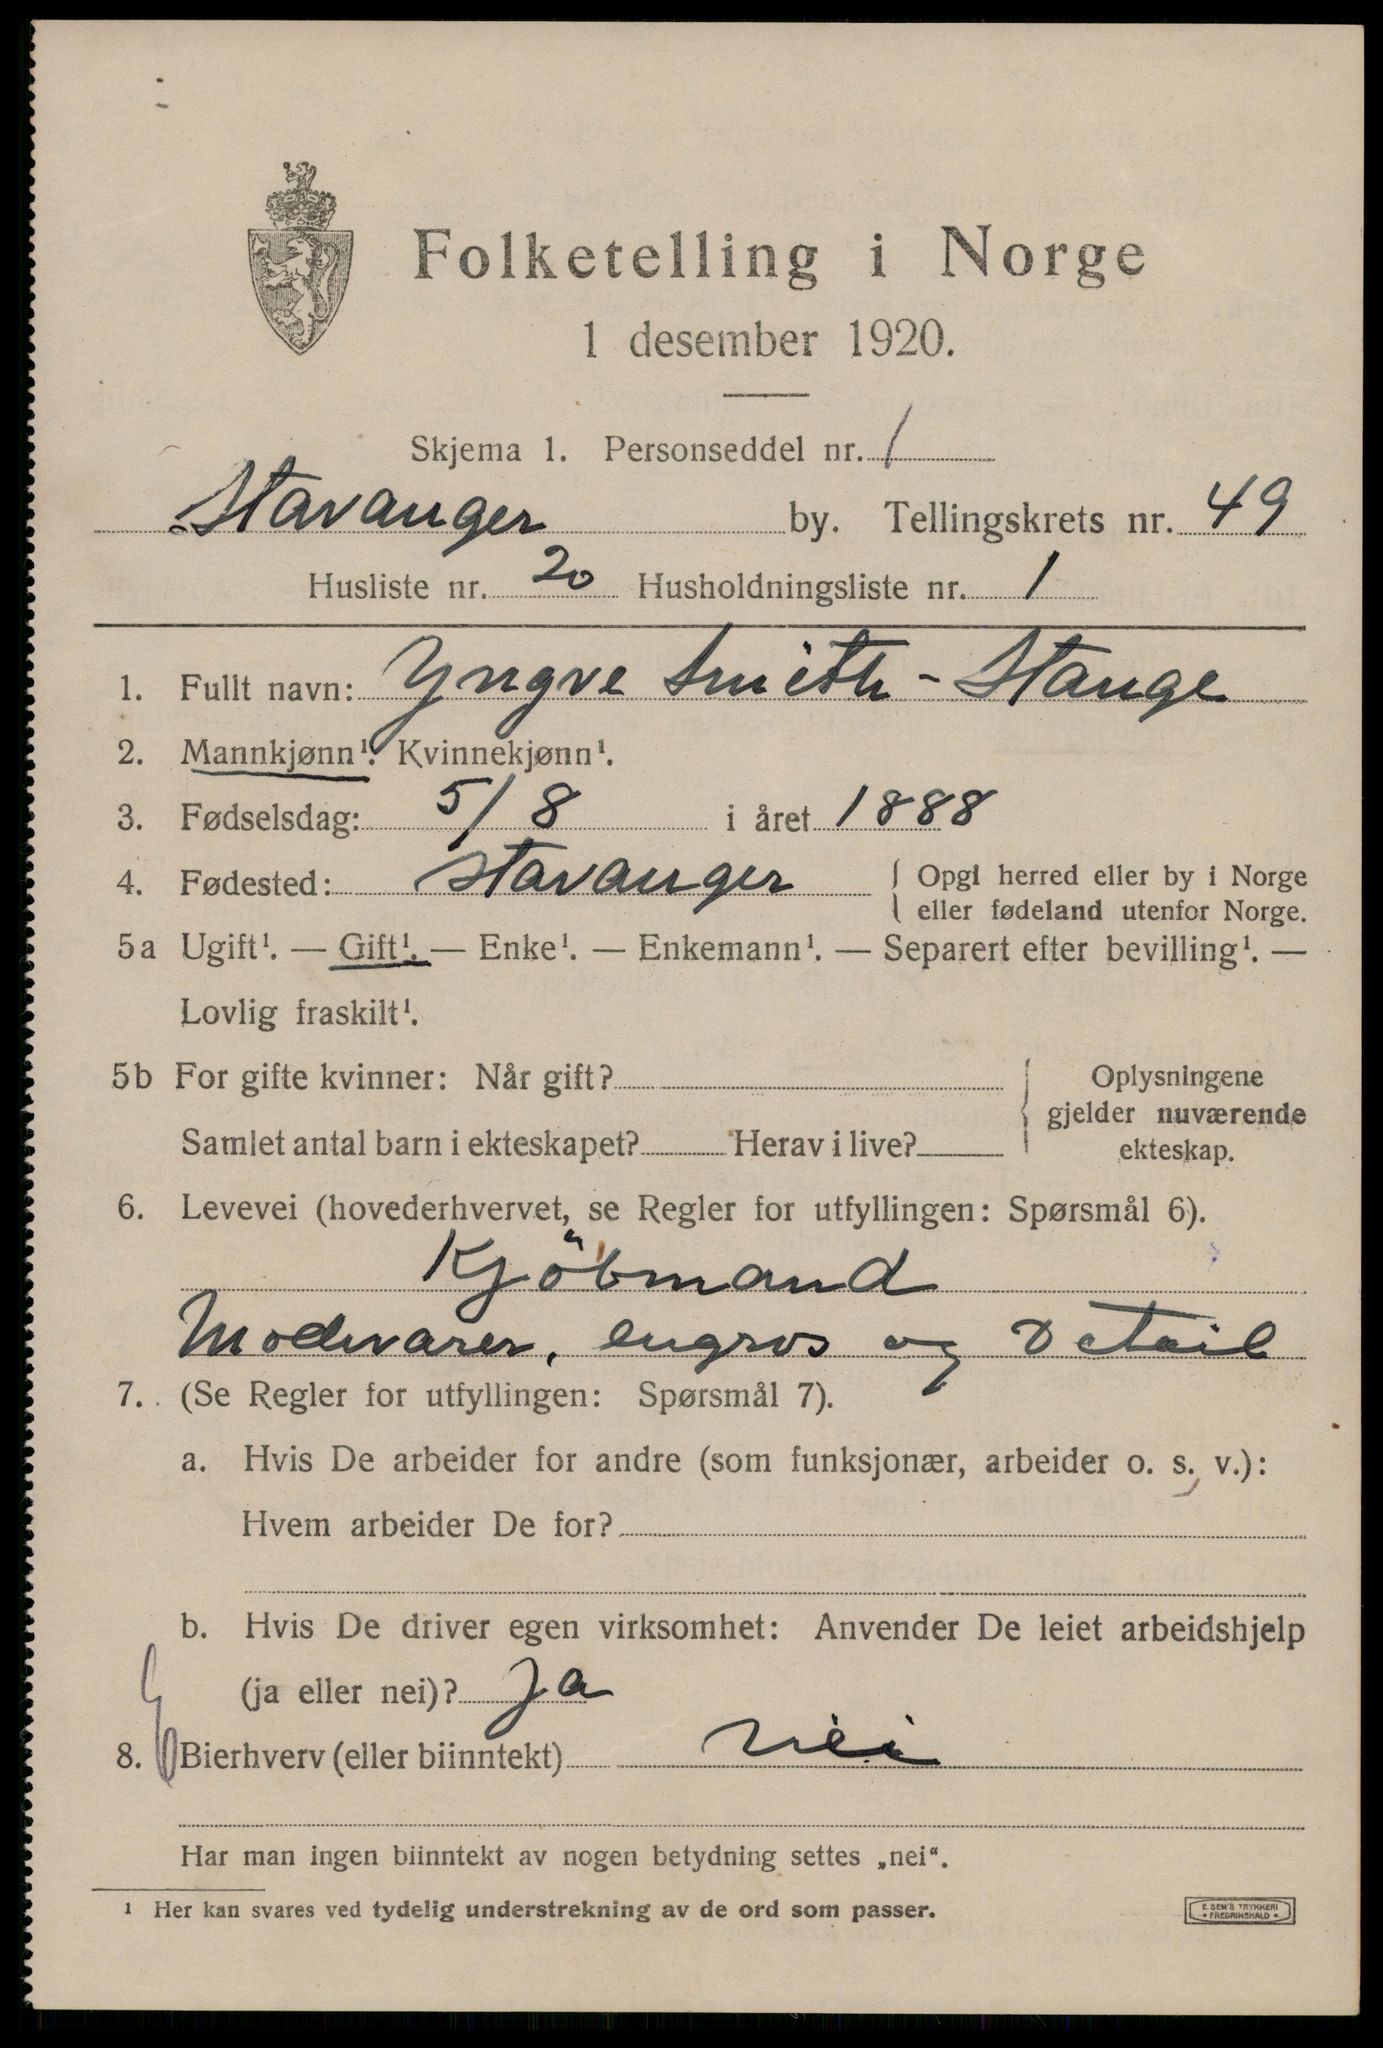 Folketelling i Norge
1 desember 1920.
Skjema 1. Personseddel nr. 1
Stavanger by. Tellingskrets nr. 49
Husliste nr. 20 Husholdningsliste nr. 1
1. Fullt navn: Yngve Smith-Stange
2. Mannkjønn¹. Kvinnekjønn¹.
3. Fødselsdag: 5/8 i året 1888
4. Fødested: Stavanger { Opgi herred eller by i Norge
eller fødeland utenfor Norge.
5a Ugift¹. — Gift¹. — Enke¹. — Enkemann¹. — Separert efter bevilling¹. —
Lovlig fraskilt¹.
5b For gifte kvinner: Når gift? { Oplysningene
gjelder nuværende
Samlet antal barn i ekteskapet? Herav i live? ekteskap.
6. Levevei (hovederhvervet, se Regler for utfyllingen: Spørsmål 6).
Kjöbmand
Modevarer, engros og Detail
7. (Se Regler for utfyllingen: Spørsmål 7).
a. Hvis De arbeider for andre (som funksjonær, arbeider o. s. v.):
Hvem arbeider De for?
b. Hvis De driver egen virksomhet: Anvender De leiet arbeidshjelp
(ja eller nei)? Ja
8. Bierhverv (eller biinntekt) nei
Har man ingen biinntekt av nogen betydning settes „nei“.
¹ Her kan svares ved tydelig understrekning av de ord som passer.
E. SEM'S TRYKKERI
• FREDRIKSHALD •